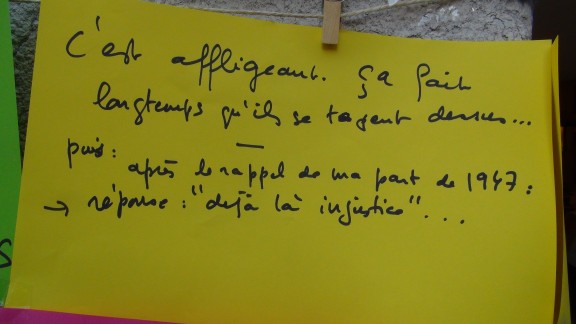 C'est affligeant. ça fait
longtemps qu'ils se tapent dessus...
—
puis :
après le rappel de ma part de 1947 :
→ réponse : "déjà là injustice"...
S